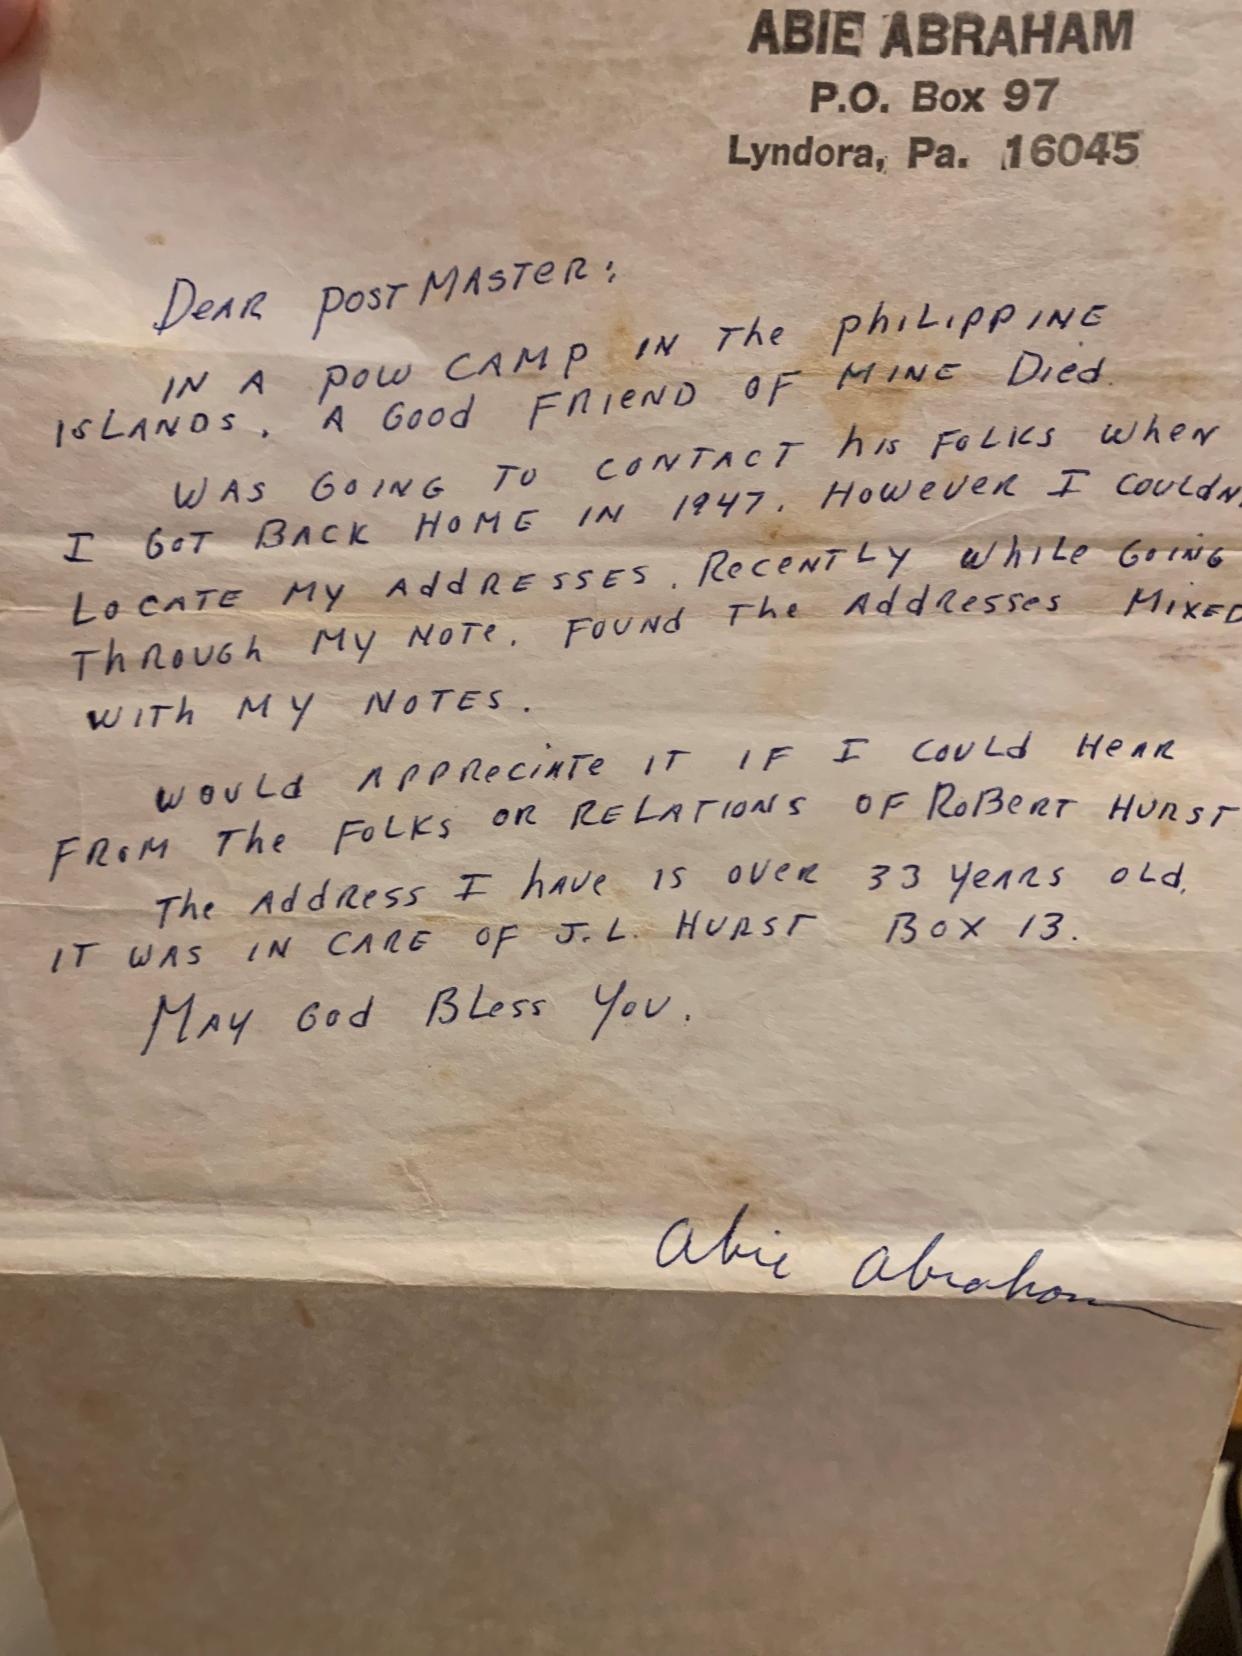 ABIE ABRAHAM
P.O. Box 97
Lyndora, Pa. 16045
Dear Postmaster:
IN A POW CAMP IN The PhILIPPINE
ISLANDS. A Good FRIEND OF MINE Died.
WAS GOING TO CONTACT his FOLKS when
I GOT BACK HOME IN 1947. However I COULDN
LOCATE MY AddRESSES. Recently while GOING
ThROUGh MY NOTe. FOUND The Addresses MIXED
WITh MY NOTES.
WOULd APPReciate IT IF I COULd HeAR
FROM The FOLKS OR RELATIONS OF RoBERT HURST
The AddRess I hAve IS over 33 yeARS oLd.
IT WAS IN CARE OF J.L. HURST BOX 13.
MAY God BLess You.
Abie Abraham